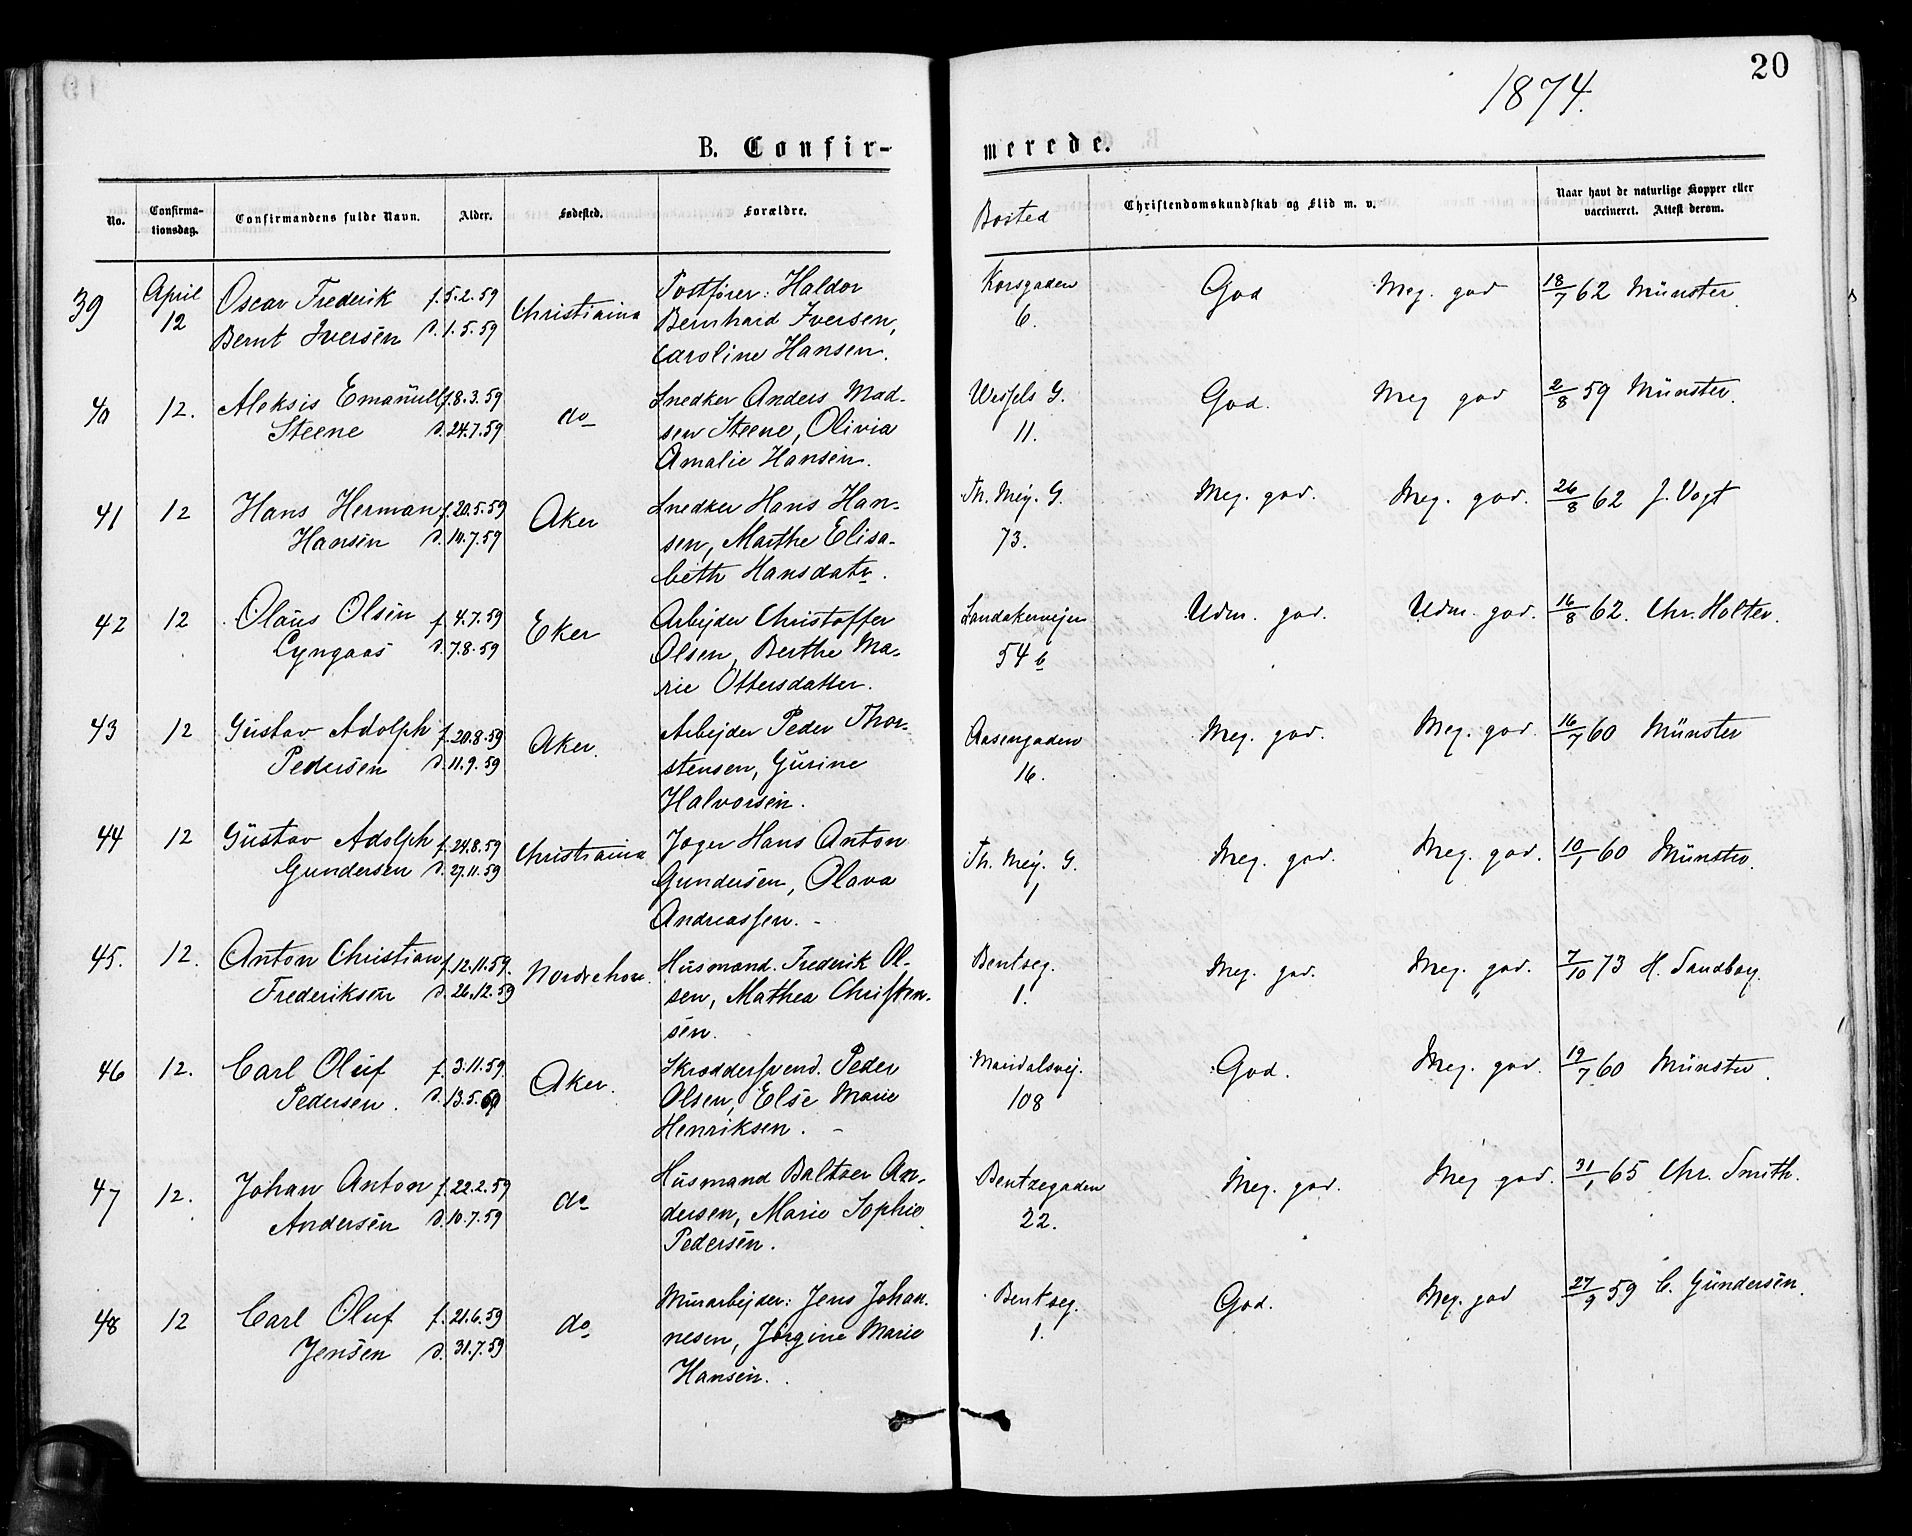 20
1874.
B. Confir-
merede.
No.
Confirma-
tionsdag.
Confirmandens fulde Navn.
Alder.
Fødested.
Forældre.
Bosted
Christendomskundskab og Flid m. v.
Naar havt de naturlige Kopper eller
vaccineret. Attest derom.
39 April Oscar Frederik f. 5.2.59 Christiania Postfører: Haldor Korsgaden God Meg. god 18/7 62 Münster.
12 Bernt Iversen d. 1.5.59 Bernhard Iversen, 6.
Caroline Hansen.
40 12. Aleksis Emanuel f. 8.3.59 do Snedker Anders Mad- Wessels G. God. Meg god 2/8 59 Münster.
Steene d. 24.7.59 sen Steene, Olivia 11.
Amalie Hansen.
41 12 Hans Herman f. 20.5.59 Aker Snedker Hans Han- Th. Mey. G. Meg. god. Meg. god. 26/8 62 J. Vogt
Hansen d. 10.7.59 sen, Marthe Elisa- 73.
beth Hansdatr.
42 12 Olaus Olsen f. 4.7.59 Eker Arbejder Christoffer Sandakerveien Udm. god. Udm. god. 16/8 62. Chr. Holter.
Lyngaas d. 7.8.59 Olsen, Berthe Ma- 54 b
rie Ottersdatter.
43 12 Gustav Adolph f. 20.8.59 Aker. Arbejder Peder Thor- Aasengaden Meg. god. Meg. god. 16/7 60 Münster
Pedersen d. 11.9.59 stensen, Gurine 16.
Halvorsen.
44 12 Gustav Adolph f. 24.8.59 Christiania Jager Hans Anton Th. Mey. G. Meg. god. Meg. god. 10/1 60 Münster.
Gundersen d. 27.11.59 Gundersen, Olava 1
Andreassen. -
45. 12. Anton Christian f. 12.11.59. Norderhov. Husmand. Frederik Ol- Bentseg. Meg. god. Meg. god. 7/10 73 H. Sandboy.
Frederiksen d. 26.12.59 sen, Mathea Christen- 1.
sen.
46 12. Carl Oluf f. 3.11.59. Aker. Skræddersvend. Peder Maridalsvej. God. Meg. god. 19/7 60 Münster.
Pedersen. d. 13.5.60 Olsen, Else Marie 108
Henriksen. -
47 12. Johan Anton f. 22.2.59 do Husmand Baltzer An- Bentzegaden Meg. god. Meg god. 31/1 65 Chr. Smith.
Andersen d. 10.7.59 dersen, Marie Sophie 22.
Pedersen.
48 12 Carl Oluf f. 21.6.59 do Murarbejder: Jens Johan- Bentseg. God. Meg. god 27/9 59 C. Gundersen.
Jensen d. 31.7.59 nesen, Jørgine Marie 1.
Hansen.